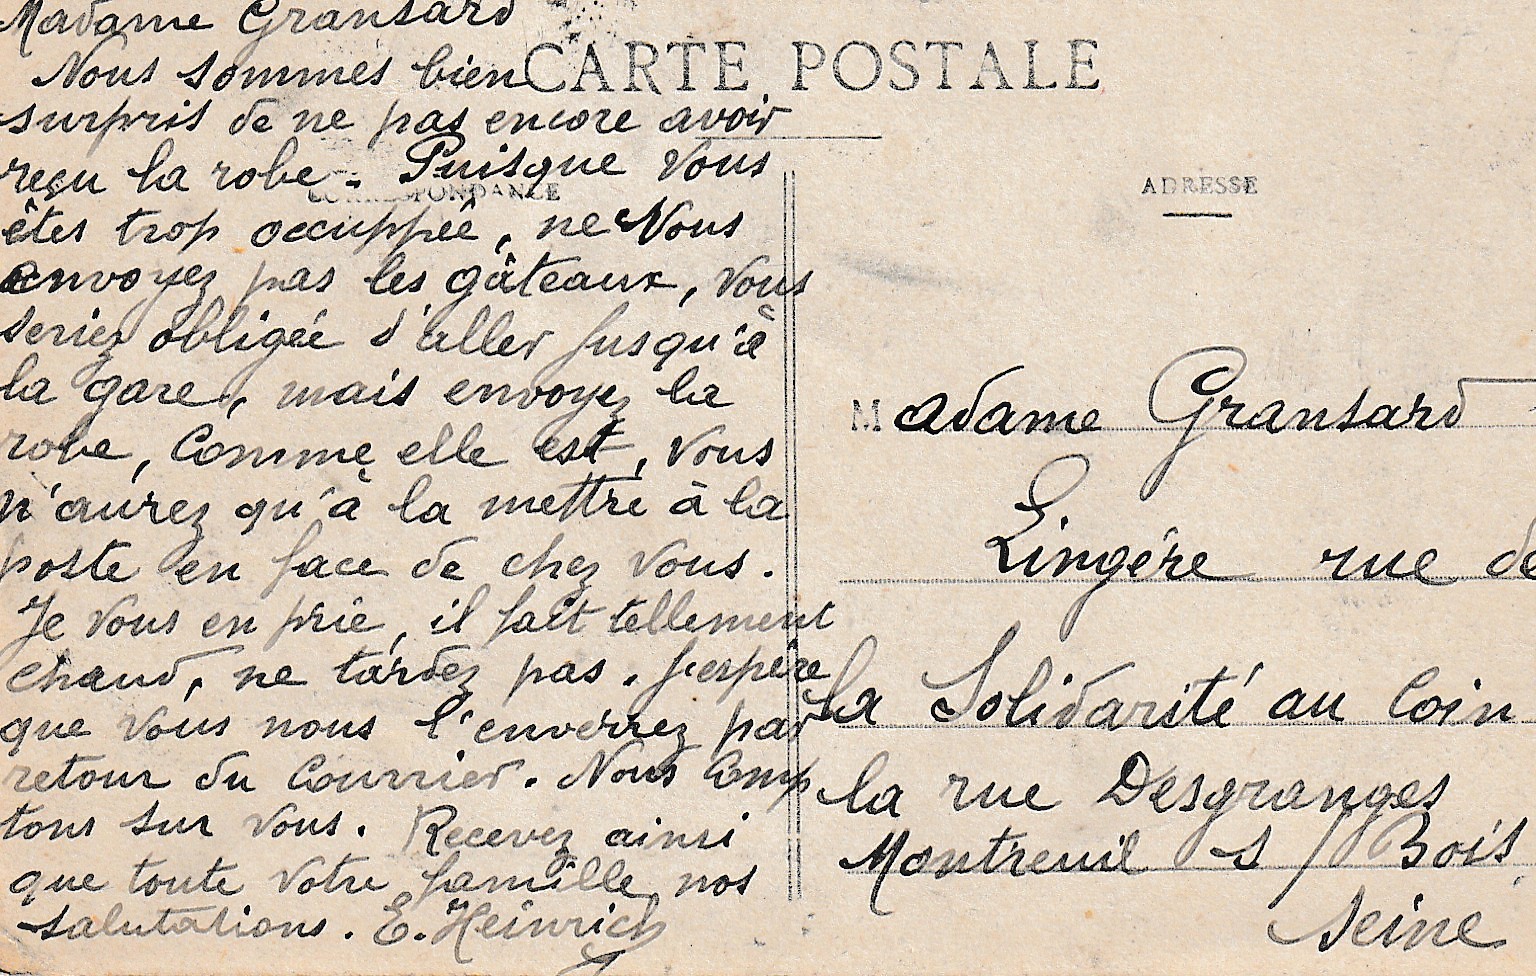 CARTE POSTALE
CORRESPONDANCE
ADRESSE
Madame Gransard
Nous sommes bien
surpris de ne pas encore avoir
reçu la robe. Puisque vous
êtes trop occuppée, ne Nous
envoyez pas les gâteaux, vous
seriez obligée d'aller jusqu'à
la gare, mais envoyez la
robe, comme elle est, vous
n'aurez qu'à la mettre à la
poste en face de chez vous.
Je vous en prie, il fait tellement
chaud, ne tardez pas. J'espère
que vous nous l'enverrez par
retour du courrier. Nous comp
tons sur vous. Recevez ainsi
que toute votre famille, nos
salutations. E. Heinrich
Madame Gransard
Lingére rue de
la Solidarité au coin
la rue Desgranges
Montreuil s/ Bois
Seine